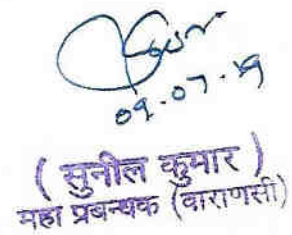 09.07.19
( सुनील कुमार )
महा प्रबन्धक (वाराणसी)